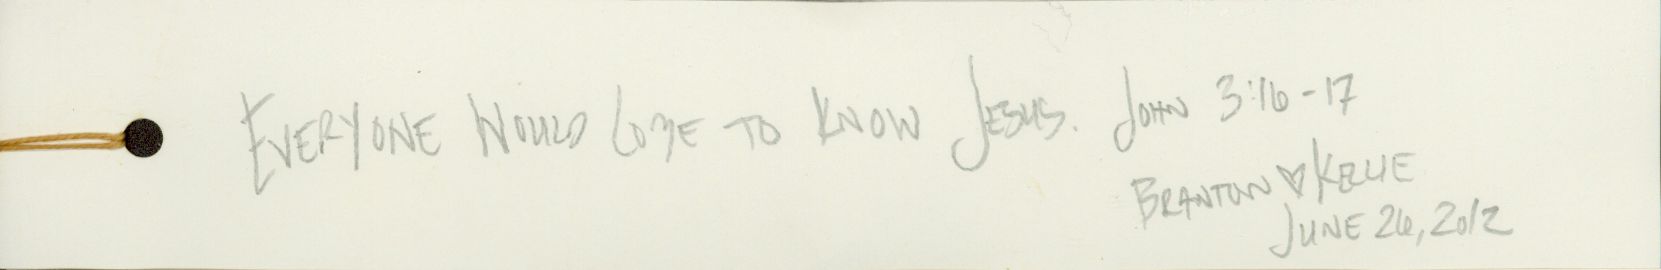 Everyone Would Come to Know Jesus. John 3:16-17
Branton ♡ Kellie
June 26, 2012